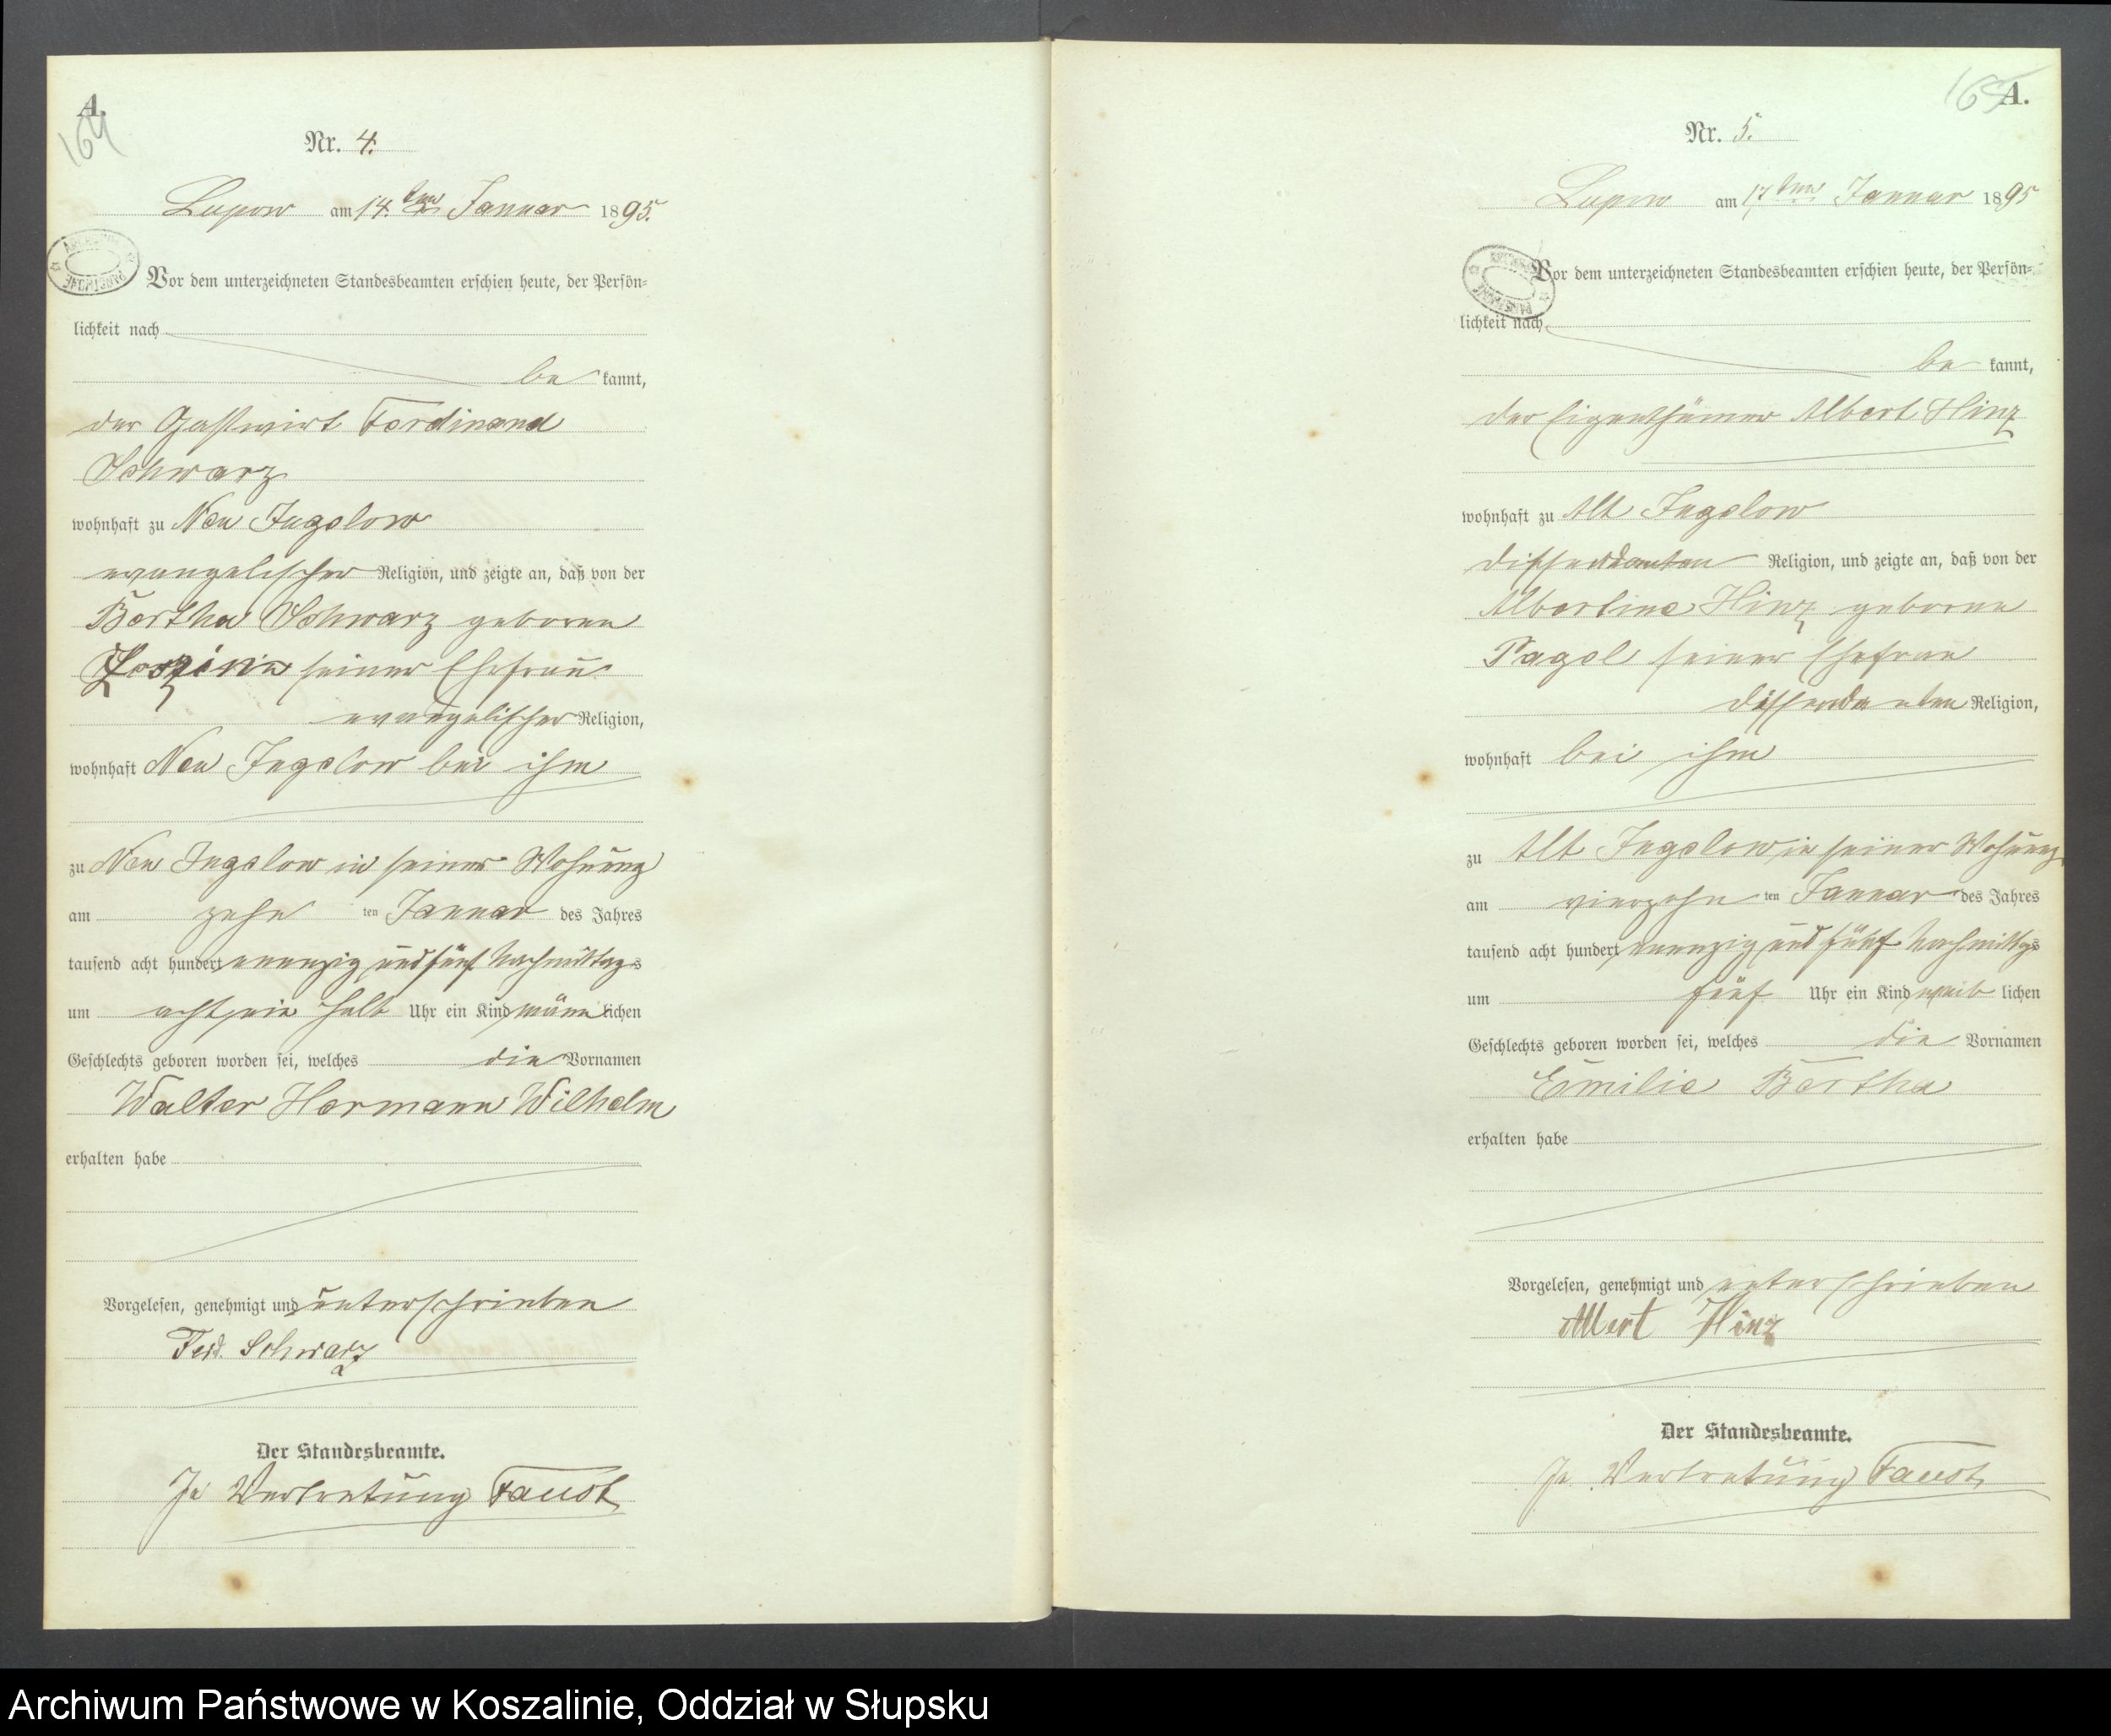 A.
164
Nr. 4.
Lupow am 14ten Januar 1895.
Vor dem unterzeichneten Standesbeamten erschien heute, der Persön-
lichkeit nach
be kannt,
der Gastwirt Ferdinand
Schwarz
wohnhaft zu Neu Jugelow
evangelischer Religion, und zeigte an, daß von der
Bertha Schwarz geborene
seiner Ehefrau
evangelischer Religion,
wohnhaft Neu Jugelow bei ihm
zu Neu Jugelow in seiner Wohnung
am zehn ten Januar des Jahres
tausend acht hundert neunzig und fünf Nachmittags
um acht ein halb Uhr ein Kind männ lichen
Geschlechts geboren worden sei, welches die Vornamen
Walter Hermann Wilhelm
erhalten habe
Vorgelesen, genehmigt und unterschrieben
Ferd. Schwarz
Der Standesbeamte.
In Vertretung Faust
165
A.
Nr. 5.
Lupow am 17ten Januar 1895
Vor dem unterzeichneten Standesbeamten erschien heute, der Persön-
lichkeit nach
be kannt,
der Eigenthümer Albert Hinz
wohnhaft zu Alt Jugelow
dissendanten Religion, und zeigte an, daß von der
Albertine Hinz geborene
Pagel seiner Ehefrau
dissendanten Religion,
wohnhaft bei ihm
zu Alt Jugelow in seiner Wohnung
am vierzehn ten Januar des Jahres
tausend acht hundert neunzig und fünf Nachmittags
um fünf Uhr ein Kind weib lichen
Geschlechts geboren worden sei, welches die Vornamen
Emilie Bertha
erhalten habe
Vorgelesen, genehmigt und unterschrieben
Albert Hinz
Der Standesbeamte.
In Vertretung Faust
Archiwum Państwowe w Koszalinie, Oddział w Słupsku